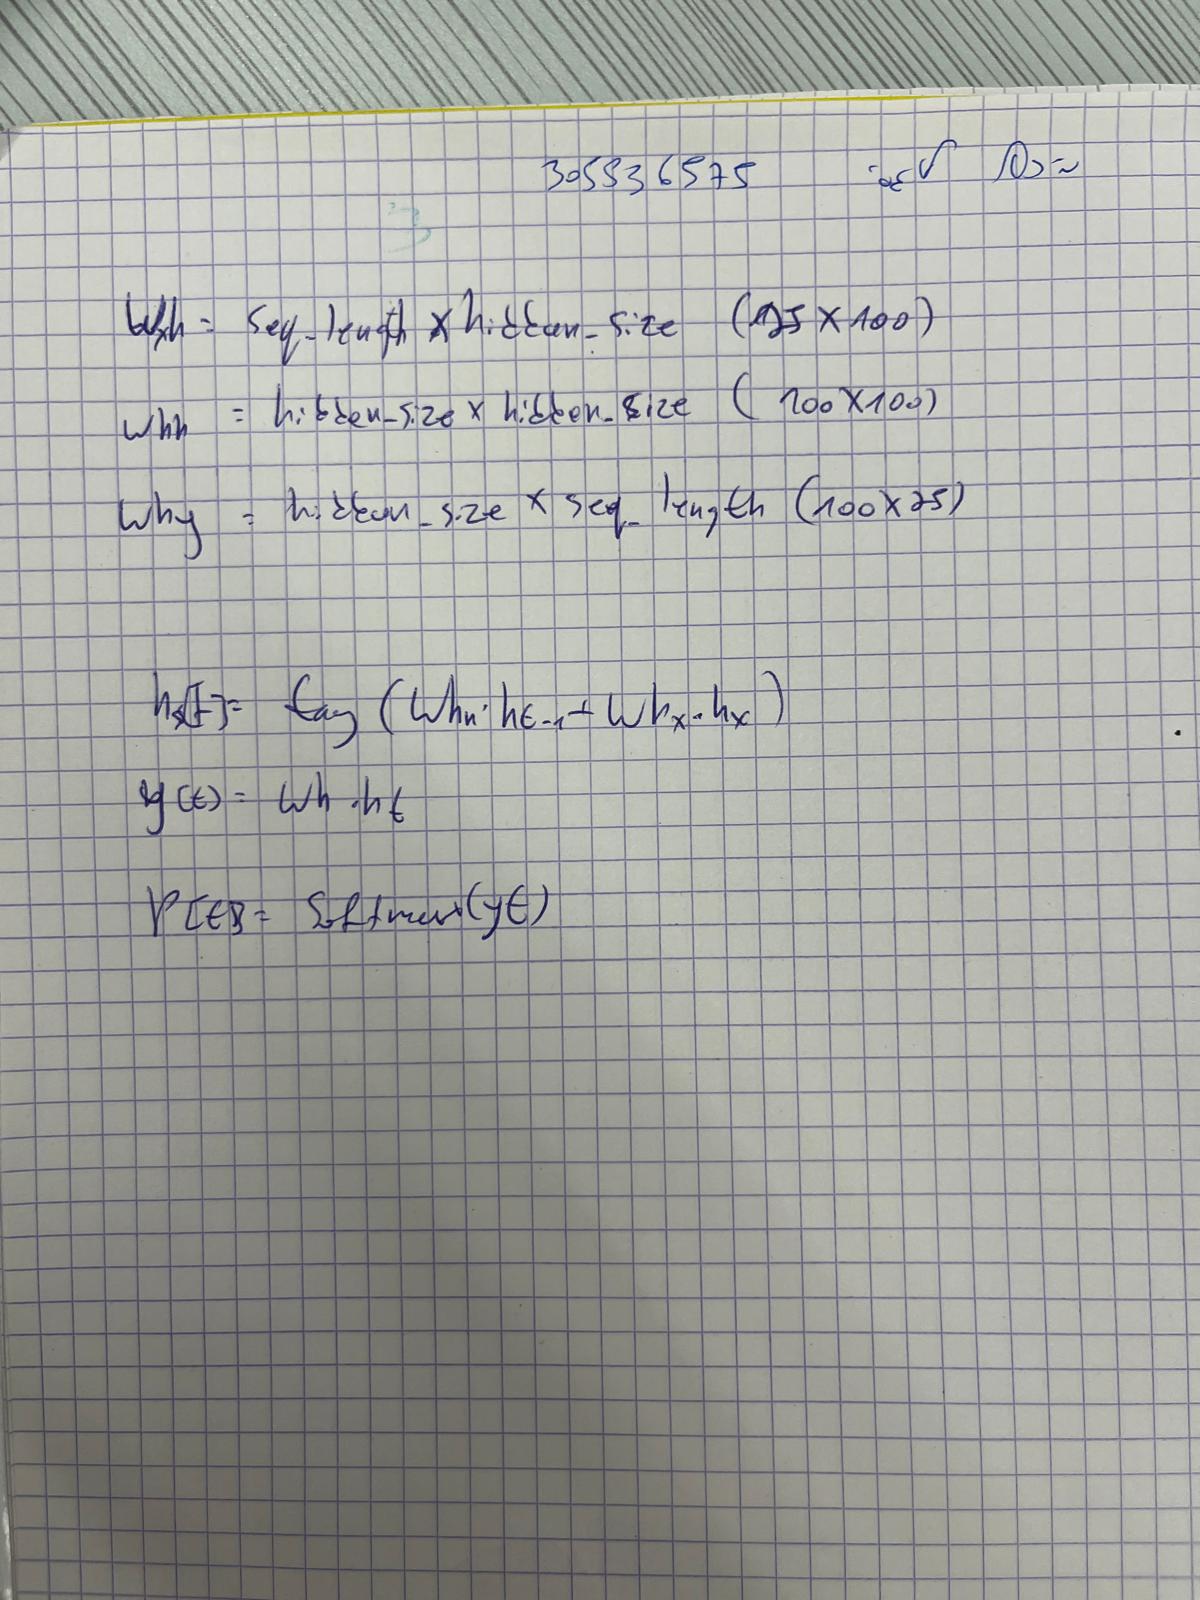 305536575
Wxh = seq_length x hidden_size (25 X 100)
whh = hidden_size x hidden_size (100X100)
Why = hidden_size x seq_length (100X25)
hs[t]= tag (Whh.ht-1+Whx.hx)
y(t) = Wh.ht
P[t]= Softmax(yt)